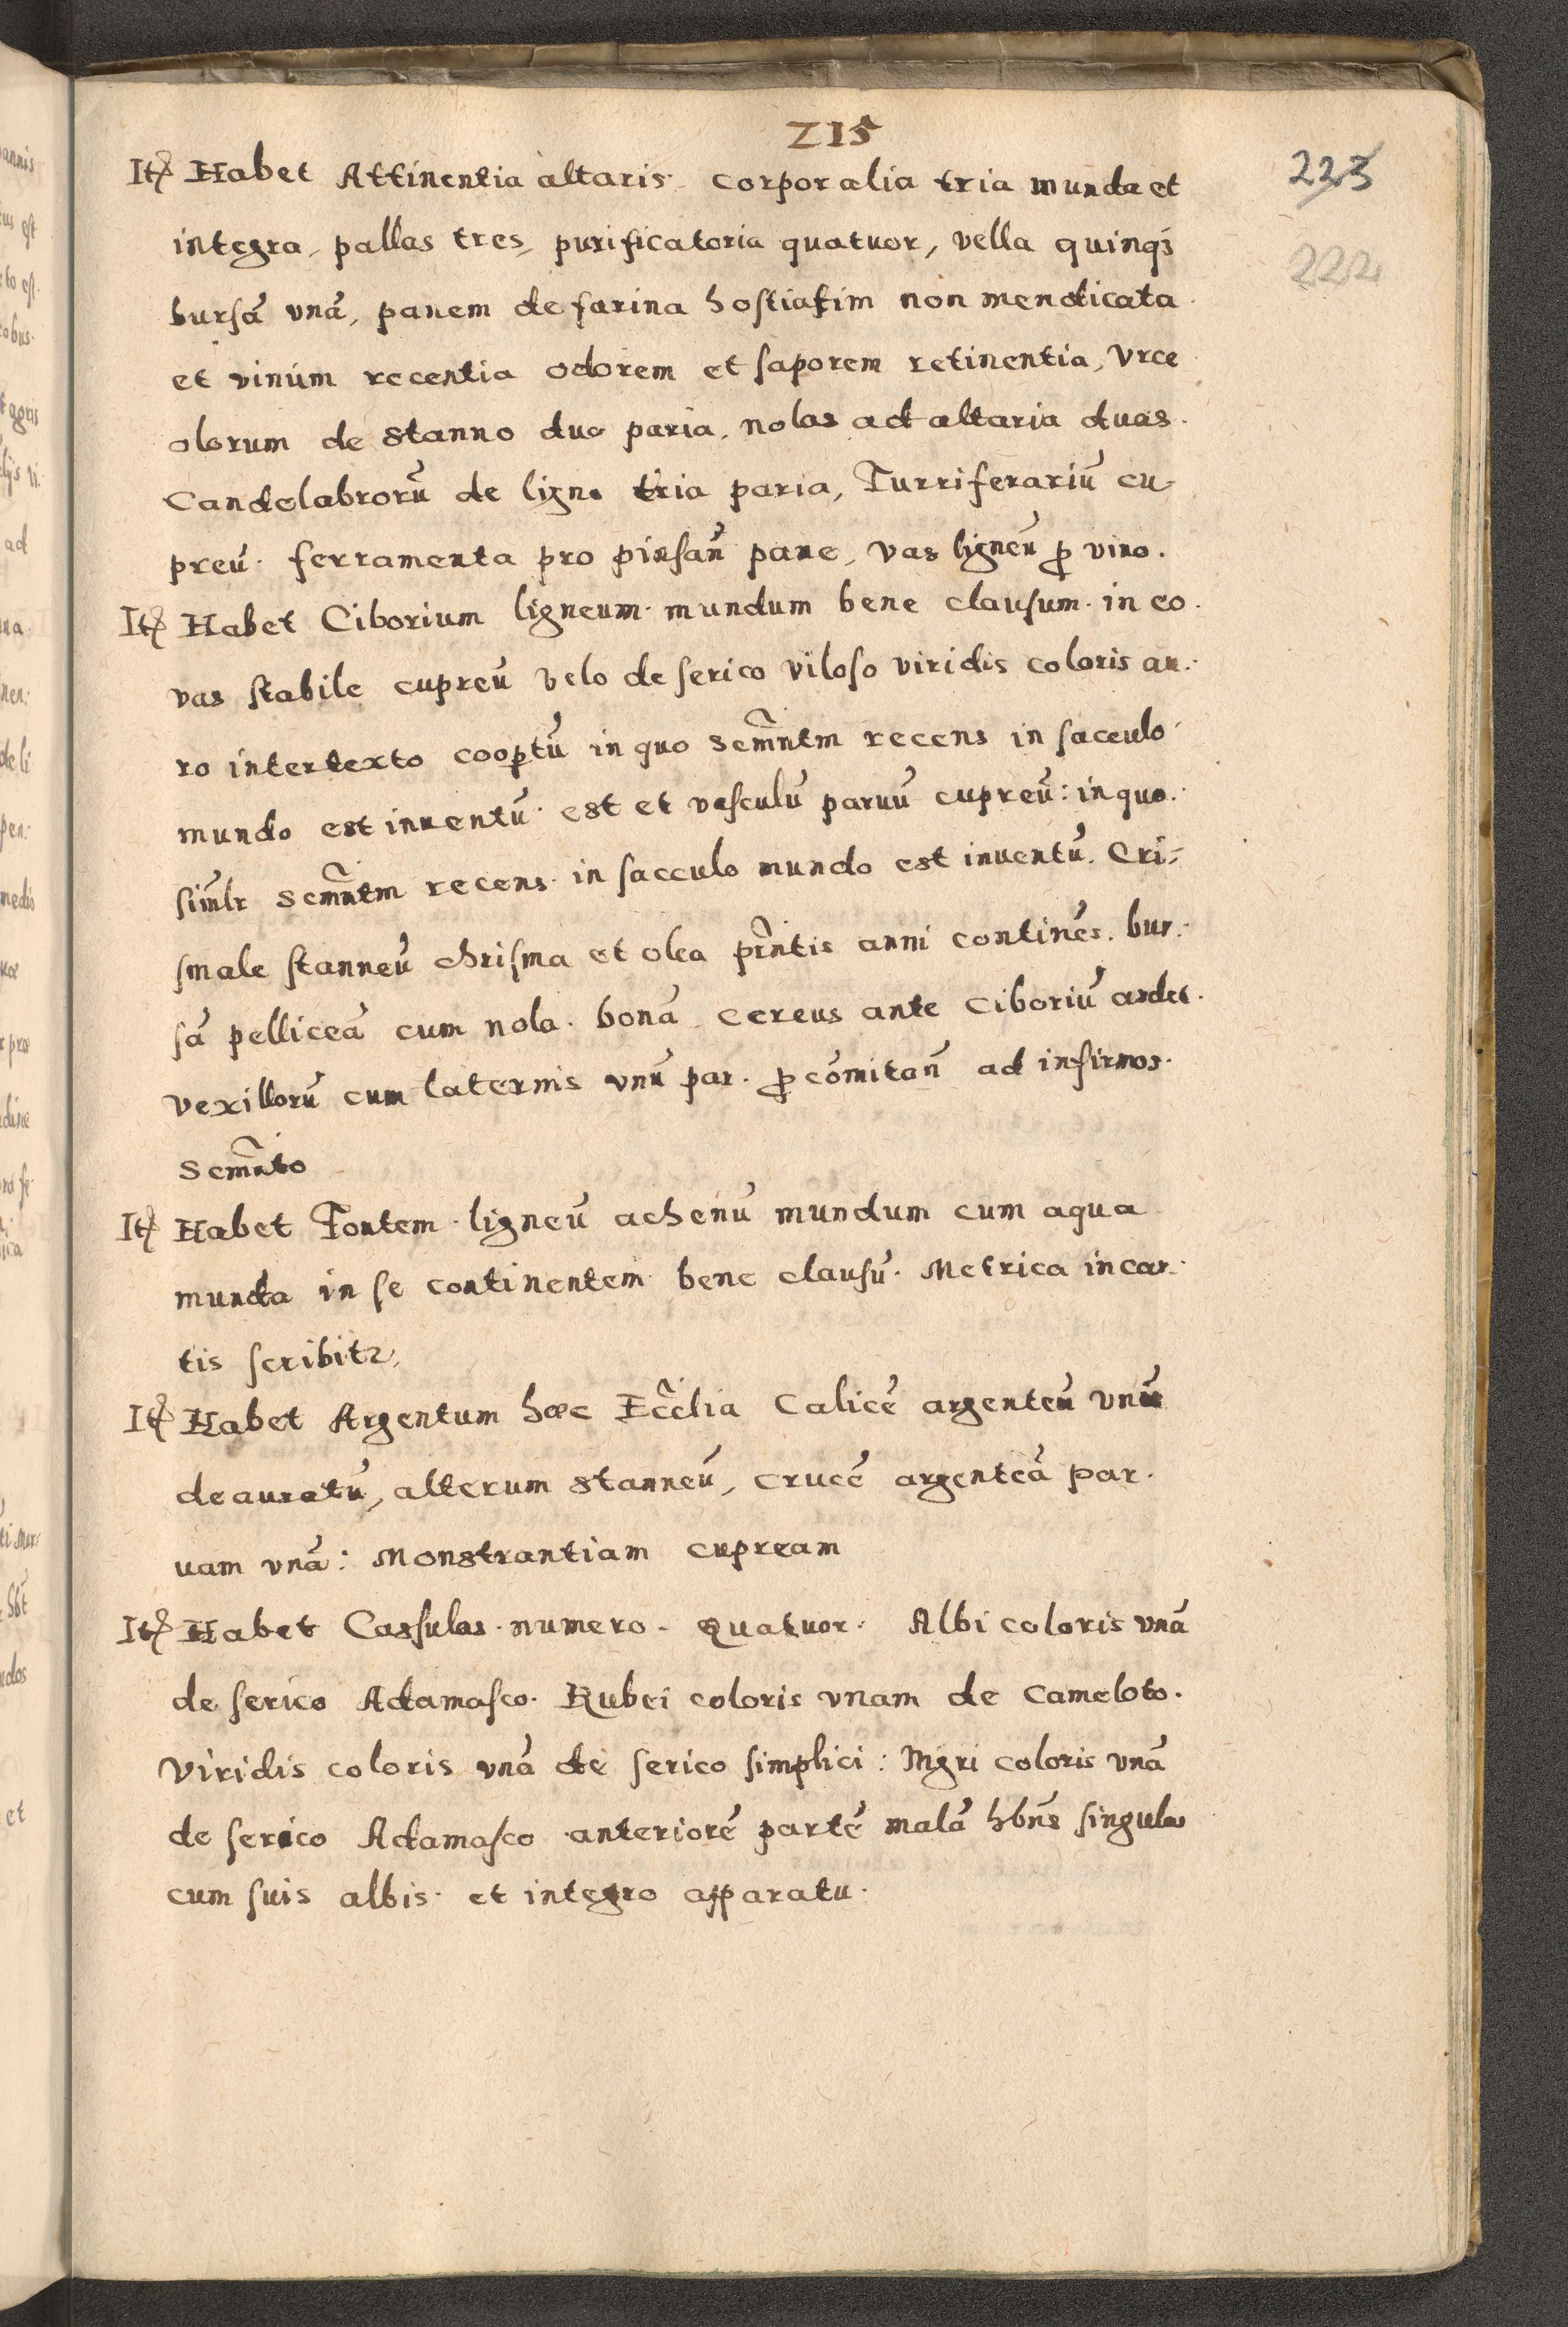 215
223
222
Itē Habet Attinentia altaris. corporalia tria munda et
integra, pallas tres, purificatoria quatuor, vella quinqȝ
bursā vnā, panem de farina hostiatim non mendicata
et vinum recentia odorem et saporem retinentia, Vrce
olorum de stanno duo paria, nolas ad altaria duas.
Candelabrorū de ligno tria paria, Turriferariū cu
preū. ferramenta pro pinsan̄ pane, vas ligneū ꝓ vino.
Itē Habet Ciborium ligneum mundum bene clausum. in eo.
vas stabile cupreū velo de serico viloso viridis coloris au.
ro intertexto cooptū in quo Scmn̄tm recens in sacculo
mundo est inuentū. est et vasculū paruū cupreū: in quo.
simlr̄ Scmn̄tm recens in sacculo mundo est inuentū. Cri-
smale stanneū chrisma et olea prn̄tis anni continēs. bur.
sā pelliceā cum nola. bonā cereus ante Ciboriū ardet.
vexillorū cum laternis vnū par. ꝓ comitan̄ ad infirmos.
Scmn̄to
Itē Habet Fontem ligneū achenū mundum cum aqua
munda in se continentem bene clausū. Metrica in car.
tis scribitr,
Itē Habet Argentum hæc Eccl̄ia Calicē argenteū vnū
deauratū, alterum stanneū, crucē argenteā par.
uam vnā: Monstrantiam cupream
Itē Habet Cassulas numero. Quatuor. Albi coloris vnā
de serico Adamasco. Rubei coloris vnam de Cameloto.
Viridis coloris vnā de serico simplici: Nigri coloris vnā
de serico Adamasco anteriorē partē malā hbn̄s singulas
cum suis albis. et integro apparatu.